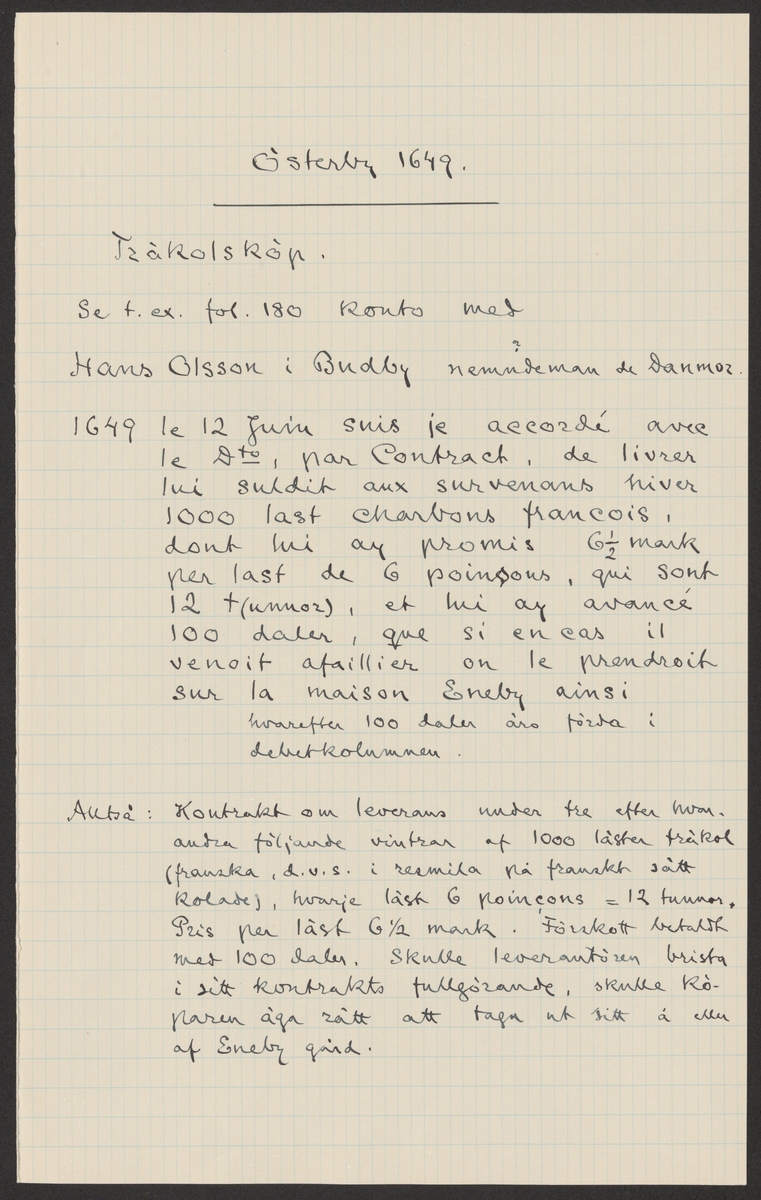 Österby 1649.
Träkolsköp.
Se t. ex. fol. 180 konto med
Hans Olsson i Budby nemndeman de Danmor.
1649 le 12 Juin suis je accordé avec
le Dto, par Contract, de livrer
lui suldit aux survenans hiver
1000 last charbons francois,
dont lui ay promis 6½ mark
per last de 6 poinsons, qui sont
12 t(unnor), et lui ay avancé
100 daler, que si en cas il
venoit afaillier on le prendroit
sur la maison Eneby ainsi
hvarefter 100 daler äro förda i
debetkolumnen.
Alltså: Kontrakt om leverans under tre efter hvar-
andra följande vintrar af 1000 läster träkol
(franska, d.v.s. i resmila på franskt sätt
kolade), hvarje läst 6 poinçons = 12 tunnor.
Pris per läst 6½ mark. Förskott betaldt
med 100 daler. Skulle leverantören brista
i sitt kontrakts fullgörande, skulle kö-
paren äga rätt att taga ut sitt å eller
af Eneby gård.